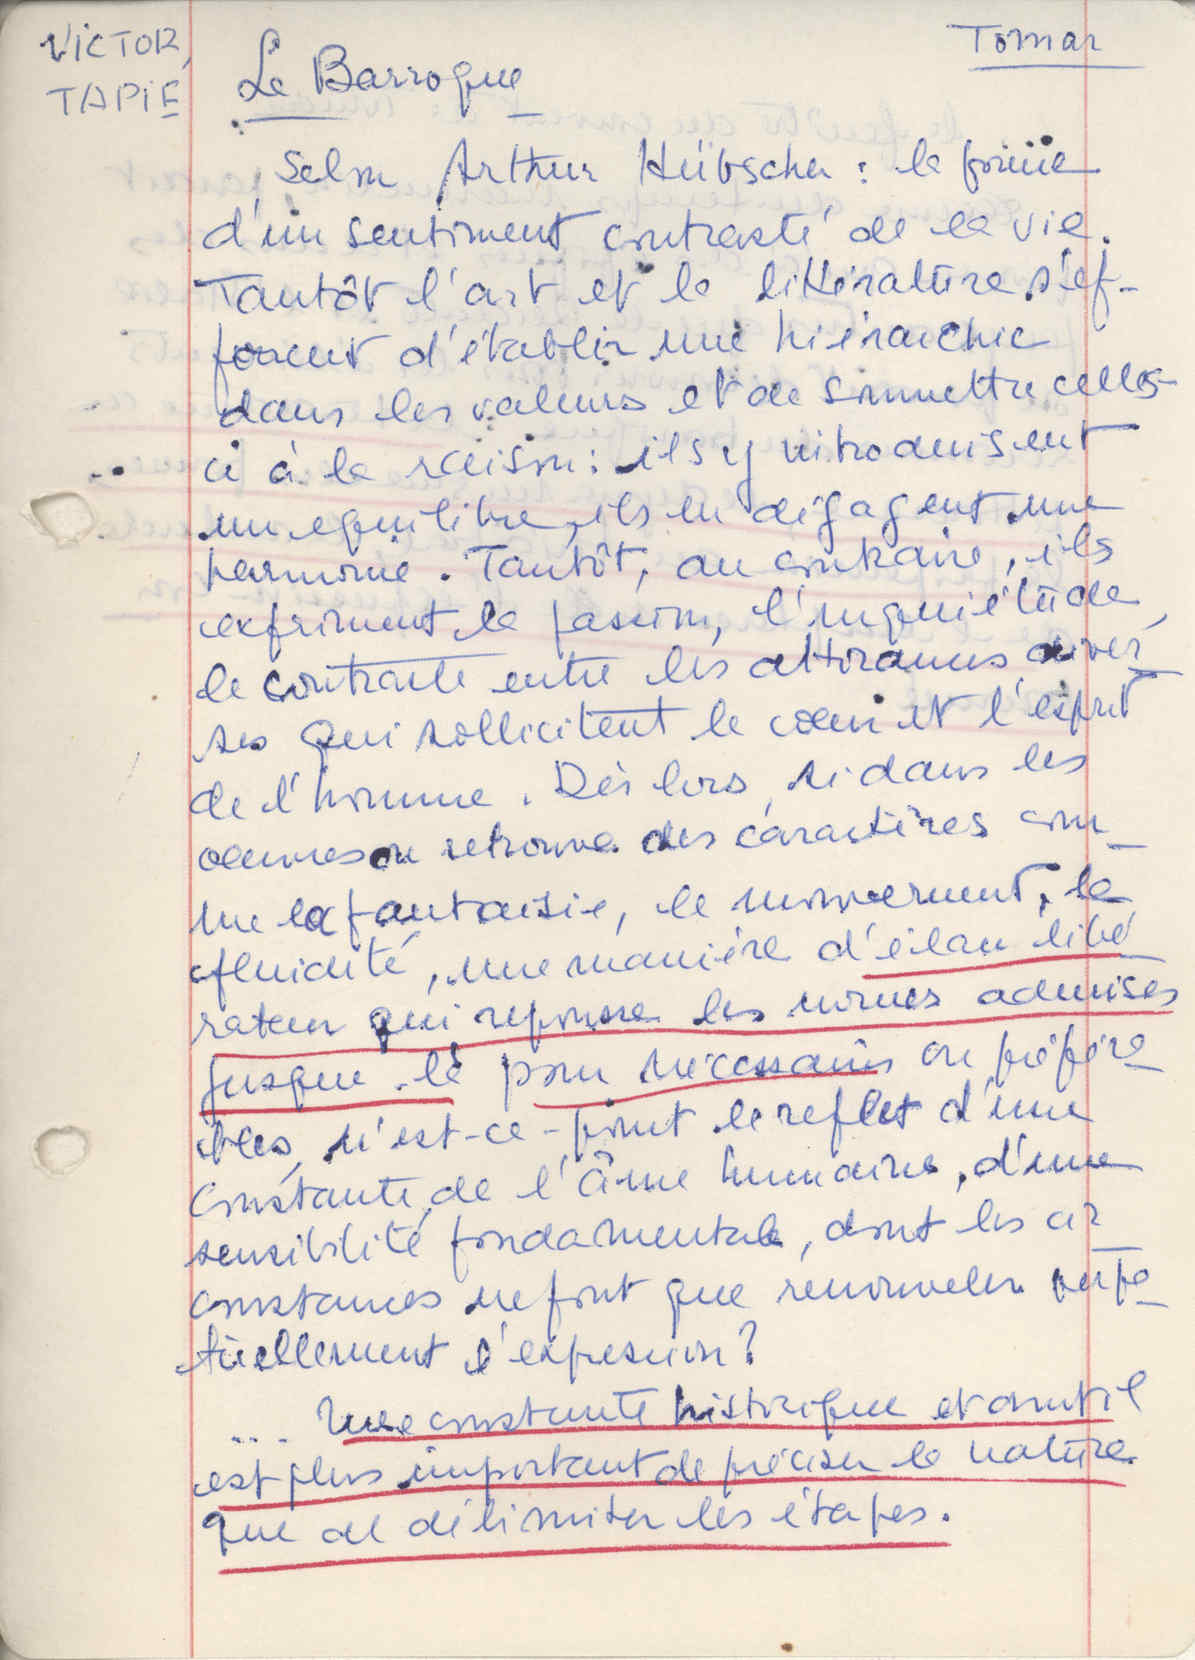 VICTOR,
TAPIE
Tomar
Le Barroque
Selon Arthur Hübscher : la forme
d'un sentiment contrasté de la vie.
Tantôt l'art et la littérature s'ef-
forcent d'établir une hiérarchie
dans les valeurs et de soumettre celles-
ci à la raison : ils y introduisent
un equilibre, ils en dégagent une
harmonie. Tantôt, au contraire, ils
expriment la passion, l'inquiétude,
le contraste entre les attirances diver_
ses qui sollicitent le coeur et l'esprit
de l'homme. Dès lors, si dans les
oeuvres on retrouve des caractères com_
me la fantaisie, le mouvement, la
fluidité, une manière d'élan libé_
rateur qui repousse les normes admises
jusque-là pour nécessaires ou préféra_
bles, n'est-ce-point le reflet d'une
constante de l'âme humaine, d'une
sensibilité fondamentale, dont les cir_
constances ne font que renouveler perpé_
tuellement l'expression?
... Une constante historique et dont il
est plus important de préciser la nature
que de délimiter les étapes.